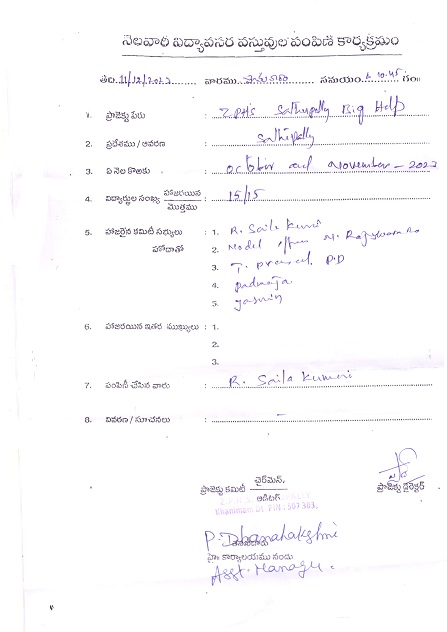 నెలవారీ విద్యావసర వస్తువుల పంపిణీ కార్యక్రమం
తేది. 11/12/2022 వారము సమయం. 10.45 గం॥
1. ప్రాజెక్టు పేరు : ZPHS Sathupally Big Help
2. ప్రదేశము / ఆవరణ : Sathupally
3. ఏ నెల కొఱకు : October and November - 2022
4. విద్యార్థుల సంఖ్య హాజరయిన / మొత్తము : 15/15
5. హాజరైన కమిటీ సభ్యులు : 1. R. Saila Kumari
హోదాతో 2. Model officer M. Rajeswara Rao
3. T. Prasad, P.D
4. Padmaja
5. Yasmin
6. హాజరయిన ఇతర ముఖ్యులు : 1.
2.
3.
7. పంపిణీ చేసిన వారు : R. Saila Kumari
8. వివరణ / సూచనలు : -
ప్రాజెక్టు కమిటీ ఛైర్‌మెన్, / ఆడిటర్ ప్రాజెక్టు డైరెక్టర్
Khammam Dt. PIN : 507 303.
P. Dhanalakshmi
హై కార్యాలయము నందు
Asst. Manager.